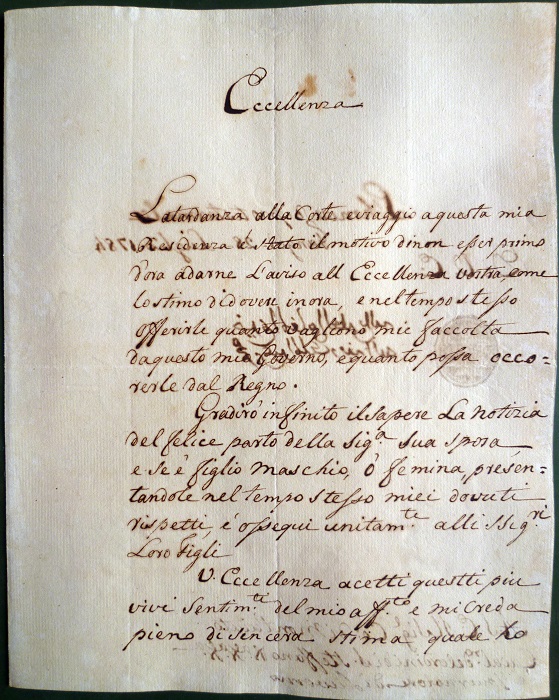 Eccellenza
Latardanza alla Corte, e viaggio a questa mia
Residenza è stato il motivo di non esser primo
d'ora adarne L'aviso all Eccellenza vostra, come
lo stimo di dovere in ora, e nel tempo stesso
offerirle quanto vagliono mie faccolta
da questo mio Governo, e quanto possa occo=
rerle dal Regno.
Gradirò infinito il sapere La notizia
del felice parto della Sig.a sua sposa
e se è figlio maschio, ò femina, presen=
tandole nel tempo stesso miei dovuti
rispetti, è ossequi unitam.te alli SSig.ri
Loro figli
V. Eccellenza acetti questti piu
vivi sentim.ti del mio aff.to e mi creda
pieno di sincera stima quale ho